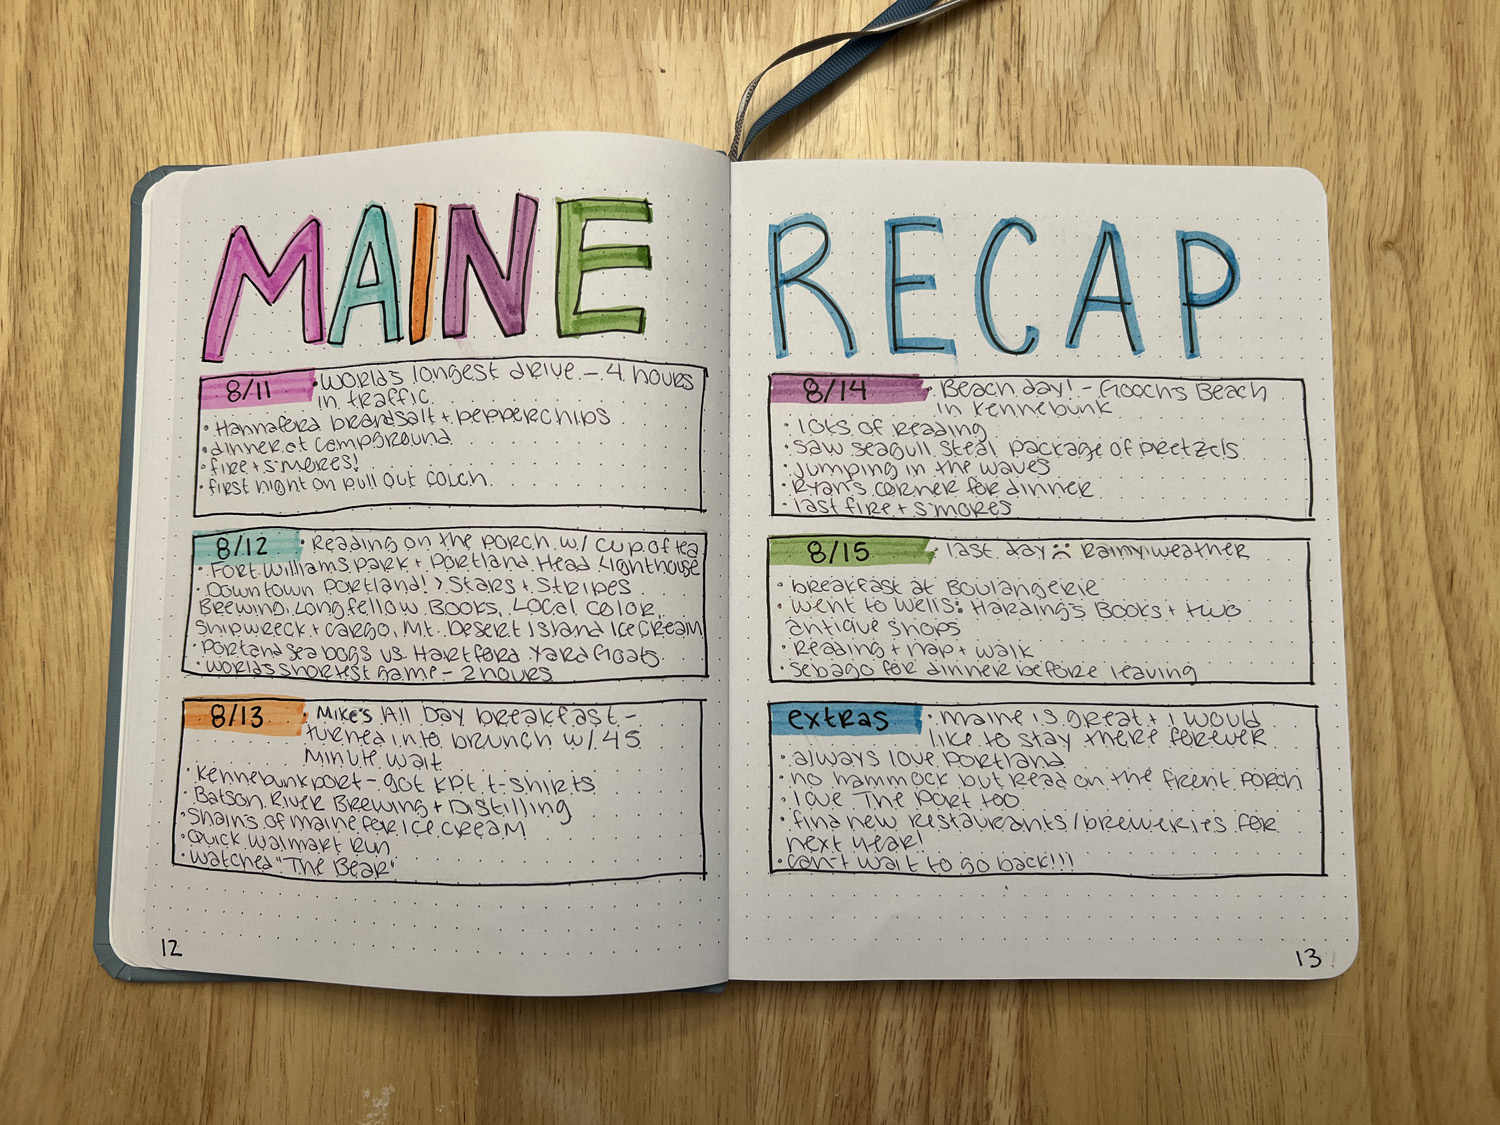 MAINE
8/11
• Worlds longest drive - 4 hours
in traffic
• Hannaford brand salt + pepper chips
• dinner at campground
• fire + s'mores!
• first night on pull out couch
8/12
• Reading on the porch w/ cup of tea
• Fort Williams Park + Portland Head Lighthouse
• Downtown Portland! > Stars + Stripes
Brewing, Longfellow Books, Local Color,
Shipwreck + Cargo, Mt. Desert Island Ice Cream
• Portland Sea Dogs vs. Hartford Yard Goats
• worlds shortest game - 2 hours
8/13
• Mike's All Day breakfast -
turned into brunch w/ 45
minute wait
• Kennebunkport - got KPT t-shirts
• Batson River Brewing + Distilling
• Shain's of Maine for ice cream
• Quick Walmart Run
• Watched "The Bear"
12
RECAP
8/14
• Beach day! - Goochs Beach
in Kennebunk
• lots of reading
• saw seagull steal package of pretzels
• jumping in the waves
• Ryan's corner for dinner
• last fire + s'mores
8/15
• last day ☹ Rainy weather
• breakfast at Boulangerie
• went to Wells: Harding's Books + two
antique shops
• reading + nap + walk
• Sebago for dinner before leaving
extras
• maine is great + I would
like to stay there forever
• always love Portland
• no hammock but read on the front porch
• love The Port too
• find new restaurants/breweries for
next year!
• can't wait to go back!!!
13